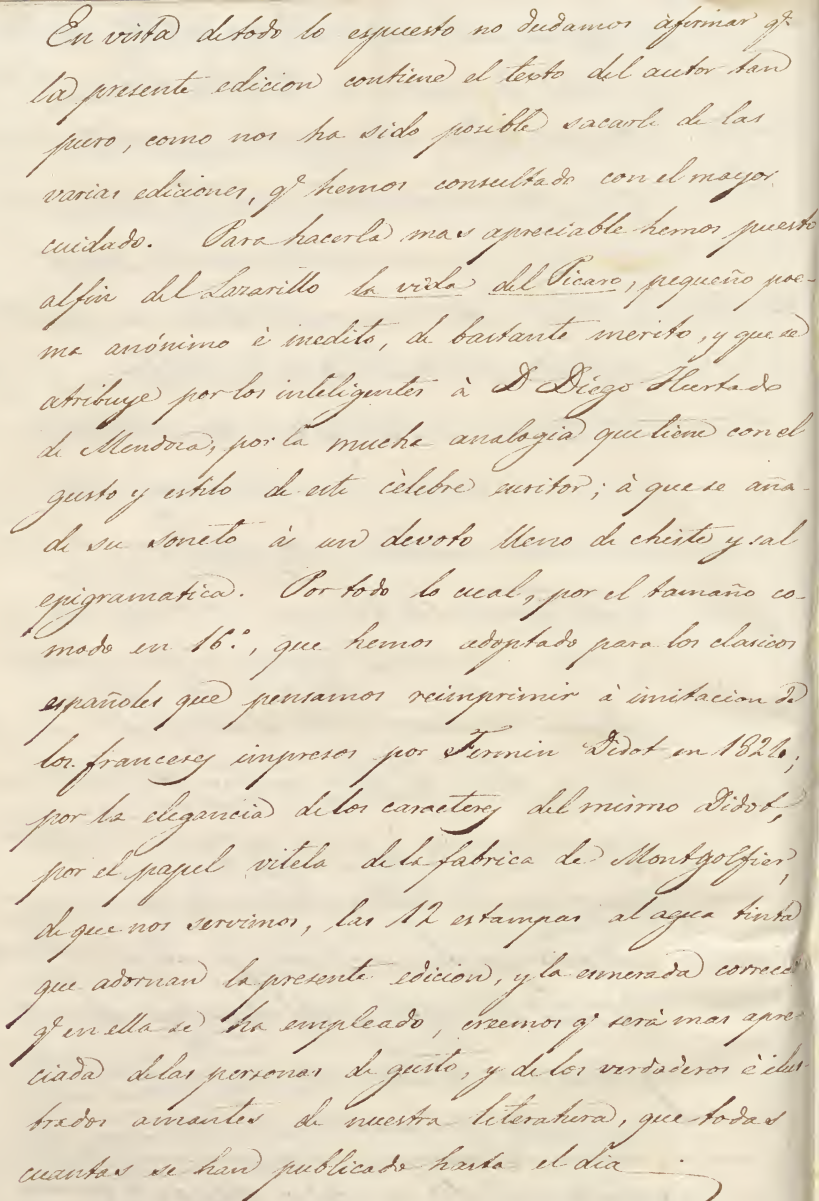 En vista de todo lo espuesto no dudamos afirmar q.e
la presente edicion contiene el texto del autor tan
puro, como nos ha sido posible sacarle de las
varias ediciones, q.e hemos consultado con el mayor
cuidado. Para hacerla mas apreciable hemos puesto
al fin del Lazarillo la vida del Picaro, pequeño poe-
ma anónimo è inedito, de bastante merito, y que se
atribuye por los inteligentes à D Diego Hurtado
de Mendoza, por la mucha analogia que tiene con el
gusto y estilo de este cèlebre escritor; à que se aña-
de su soneto à un devoto lleno de chiste y sal
epigramatica. Por todo lo cual, por el tamaño co-
modo en 16.º, que hemos adoptado para los clasicos
españoles que pensamos reimprimir à imitacion de
los franceses impresos por Fermin Didot en 1824;
por la elegancia de los caracteres del mismo Didot,
por el papel vitela de la fabrica de Montgolfier,
de que nos servimos, las 12 estampas al agua tinta
que adornan la presente edicion, y la esmerada correcc
q.e en ella se ha empleado, creemos q.e serà mas apre-
ciada de las personas de gusto, y de los verdaderos è ilus-
trados amantes de nuestra literatura, que todas
cuantas se han publicado hasta el dia.